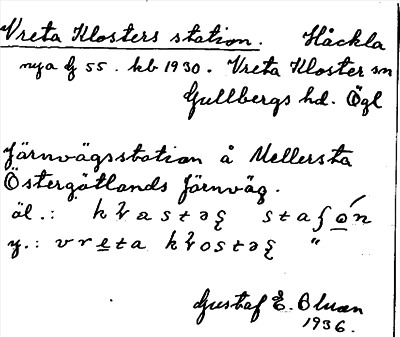 Vreta Klosters station. Håckla
nya J 55. kb 1930. Vreta Kloster sn
Gullbergs hd. Ögl
Järnvägsstation å Mellersta
Östergötlands Järnväg.
äl.:
y.: vreta "
Gustaf E. Bluan
1936.